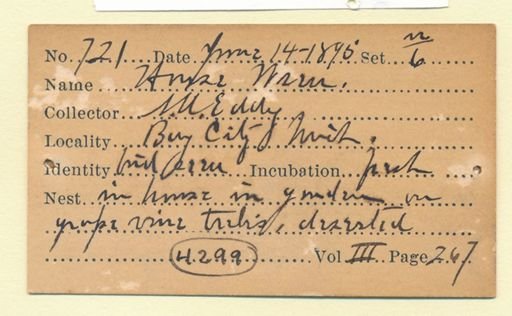 No. 721 Date June 14-1895 Set n/6
Name House Wren.
Collector N.A. Eddy
Locality Bay City, Mich.
Identity bird seen Incubation fresh
Nest in house in garden on
grape vine trelis, deserted
4299 Vol III Page 267